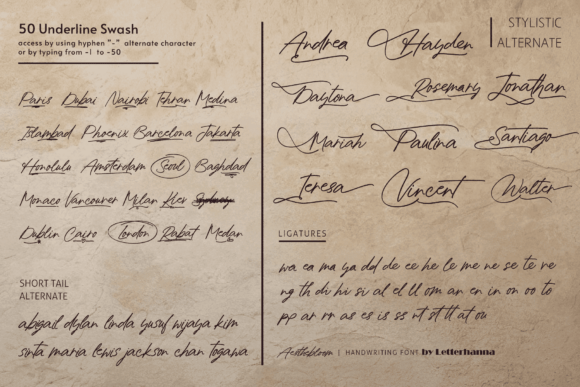 50 Underline Swash
access by using hyphen "-" alternate character
or by typing from -1 to -50
Paris Dubai Nairobi Tehran Medina
Islambad Phoenix Barcelona Jakarta
Honolulu Amsterdam Seoul Baghdad
Monaco Vancouver Milan Kler Sydney
Dublin Cairo London Rabat Medan
SHORT TAIL
ALTERNATE
abigail dylan linda yusuf wijaya kim
sinta maria lewis jackson chan togawa
STYLISTIC
ALTERNATE
Andrea Hayden
Daytona Rosemary Jonathan
Mariah Paulina Santiago
Teresa Vincent Walter
LIGATURES
wa ea ma ya dd de ee he le me ne se te re
ng th di hi si al el ll om ar en in on oo to
pp ar rr as es is ss nt st tt at ou
Aesthebloom | HANDWRITING FONT by Letterhanna